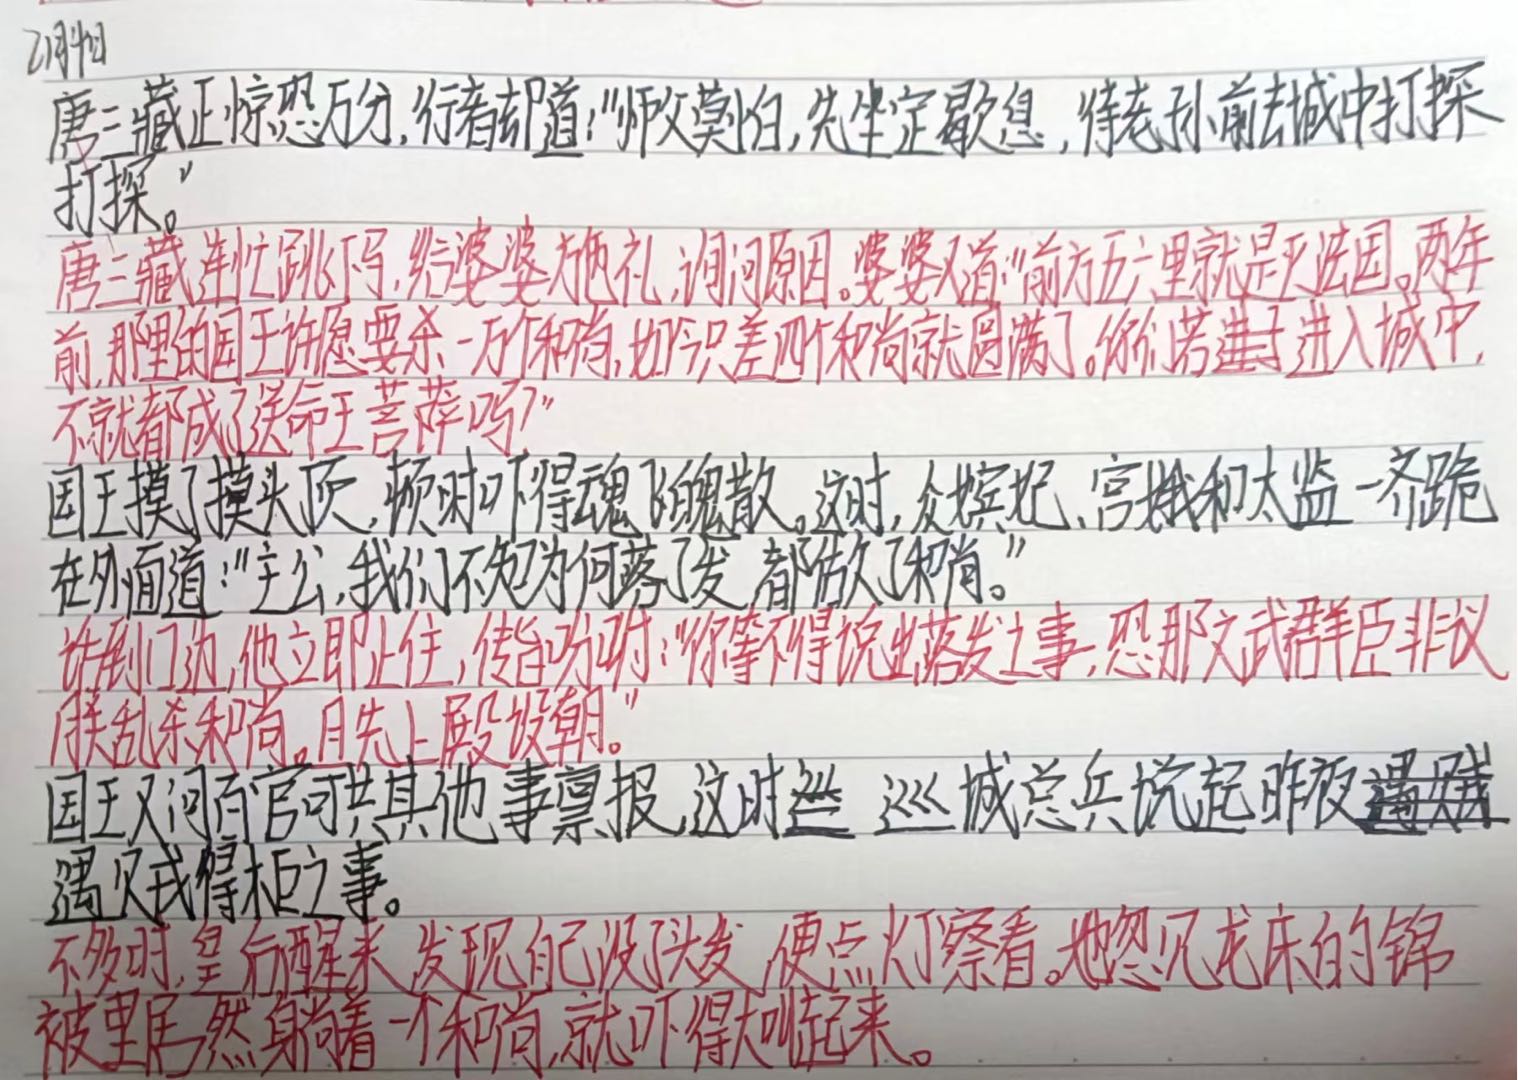 唐三藏正惊恐万分,行者却道:"师父莫怕,先坐定歇息,待老孙前去城中打探
打探。"
唐三藏连忙跳下马,给婆婆施礼,询问原因。婆婆又道:"前方五六里就是灭法国。两年
前,那里的国王许愿要杀一万个和尚,如今只差四个和尚就圆满了。你们若进入城中,
不就都成了送命王菩萨吗?"
国王摸了摸头顶,顿时吓得魂飞魄散。这时,众嫔妃、宫娥和太监一齐跪
在外面道:"主公,我们不知为何落了发,都做了和尚。"
诈到门边,他立即止住,传旨吩咐:"你等不得说出落发之事,恐那文武群臣非议
朕乱杀和尚。且先上殿设朝。"
国王又问百官可共其他事禀报,这时巛城总兵说起昨夜
遇贼得柜之事。
不多时,皇后醒来,发现自己没了头发,便点灯察看。她忽见龙床的锦
被里居然躺着一个和尚,就吓得大叫起来。